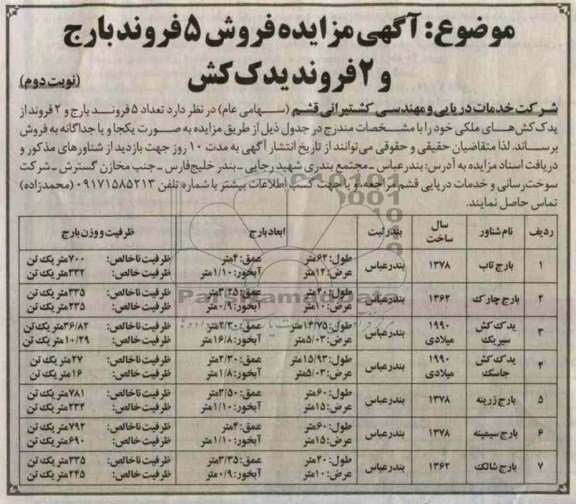 موضوع: آگهی مزایده فروش ۵ فروند بارج
و ۲ فروند یدک کش
(نوبت دوم)
شرکت خدمات دریایی و مهندسی کشتیرانی قشم (سهامی عام) در نظر دارد تعداد ۵ فروند بارج و ۲ فروند از
یدک کش های ملکی خود را با مشخصات مندرج در جدول ذیل از طریق مزایده به صورت یکجا و یا جداگانه به فروش
برساند. لذا متقاضیان حقیقی و حقوقی می‌توانند از تاریخ انتشار آگهی به مدت ۱۰ روز جهت بازدید از شناورهای مذکور و
دریافت اسناد مزایده به آدرس: بندرعباس -مجتمع بندری شهید رجایی -بندر خلیج‌فارس - جنب مخازن گسترش - شرکت
سوخت‌رسانی و خدمات دریایی قشم مراجعه، و یا جهت کسب اطلاعات بیشتر با شماره تلفن ۰۹۱۷۱۵۸۵۲۱۳ (محمدزاده)
تماس حاصل نمایند.
ردیف نام شناور سال ساخت بندر ثبت ابعاد بارج ظرفیت و وزن بارج
۱ بارج تاب ۱۳۷۸ بندرعباس طول: ۶۴متر عمق: ۴متر ظرفیت ناخالص: ۷۰۰متریک تن
عرض: ۱۴متر آبخور: ۱/۱۰متر ظرفیت خالص: ۳۳۲متریک تن
۲ بارج چارک ۱۳۶۲ بندرعباس طول: ۴۰متر عمق: ۳/۲۵متر ظرفیت ناخالص: ۳۳۵متریک تن
عرض: ۱۰متر آبخور: ۰/۹متر ظرفیت خالص: ۲۳۵متریک تن
۳ یدک کش سیریک ۱۹۹۰ میلادی بندرعباس طول: ۱۴/۷۵متر عمق: ۲/۳۰متر ظرفیت ناخالص: ۳۶/۸۲متریک تن
عرض: ۵/۰۳متر آبخور: ۱۶/۸متر ظرفیت خالص: ۱۰/۲۹متریک تن
۴ یدک کش جاسک ۱۹۹۰ میلادی بندرعباس طول: ۱۵/۹۳متر عمق: ۲/۳۰متر ظرفیت ناخالص: ۲۷متریک تن
عرض: ۵/۰۳متر آبخور: ۱/۸متر ظرفیت خالص: ۱۶متریک تن
۵ بارج زرینه ۱۳۷۸ بندرعباس طول: ۶۰متر عمق: ۳/۵۰متر ظرفیت ناخالص: ۷۸۱متریک تن
عرض: ۱۵متر آبخور: ۱/۱۰متر ظرفیت خالص: ۲۳۴متریک تن
۶ بارج سیمینه ۱۳۷۸ بندرعباس طول: ۶۰متر عمق: ۴متر ظرفیت ناخالص: ۷۹۲متریک تن
عرض: ۱۵متر آبخور: ۱/۱۰متر ظرفیت خالص: ۶۹۰متریک تن
۷ بارج شالک ۱۳۶۲ بندرعباس طول: ۴۰متر عمق: ۳/۳۵متر ظرفیت ناخالص: ۳۳۵متریک تن
عرض: ۱۰متر آبخور: ۰/۹متر ظرفیت خالص: ۲۴۵متریک تن
ParsNamadData